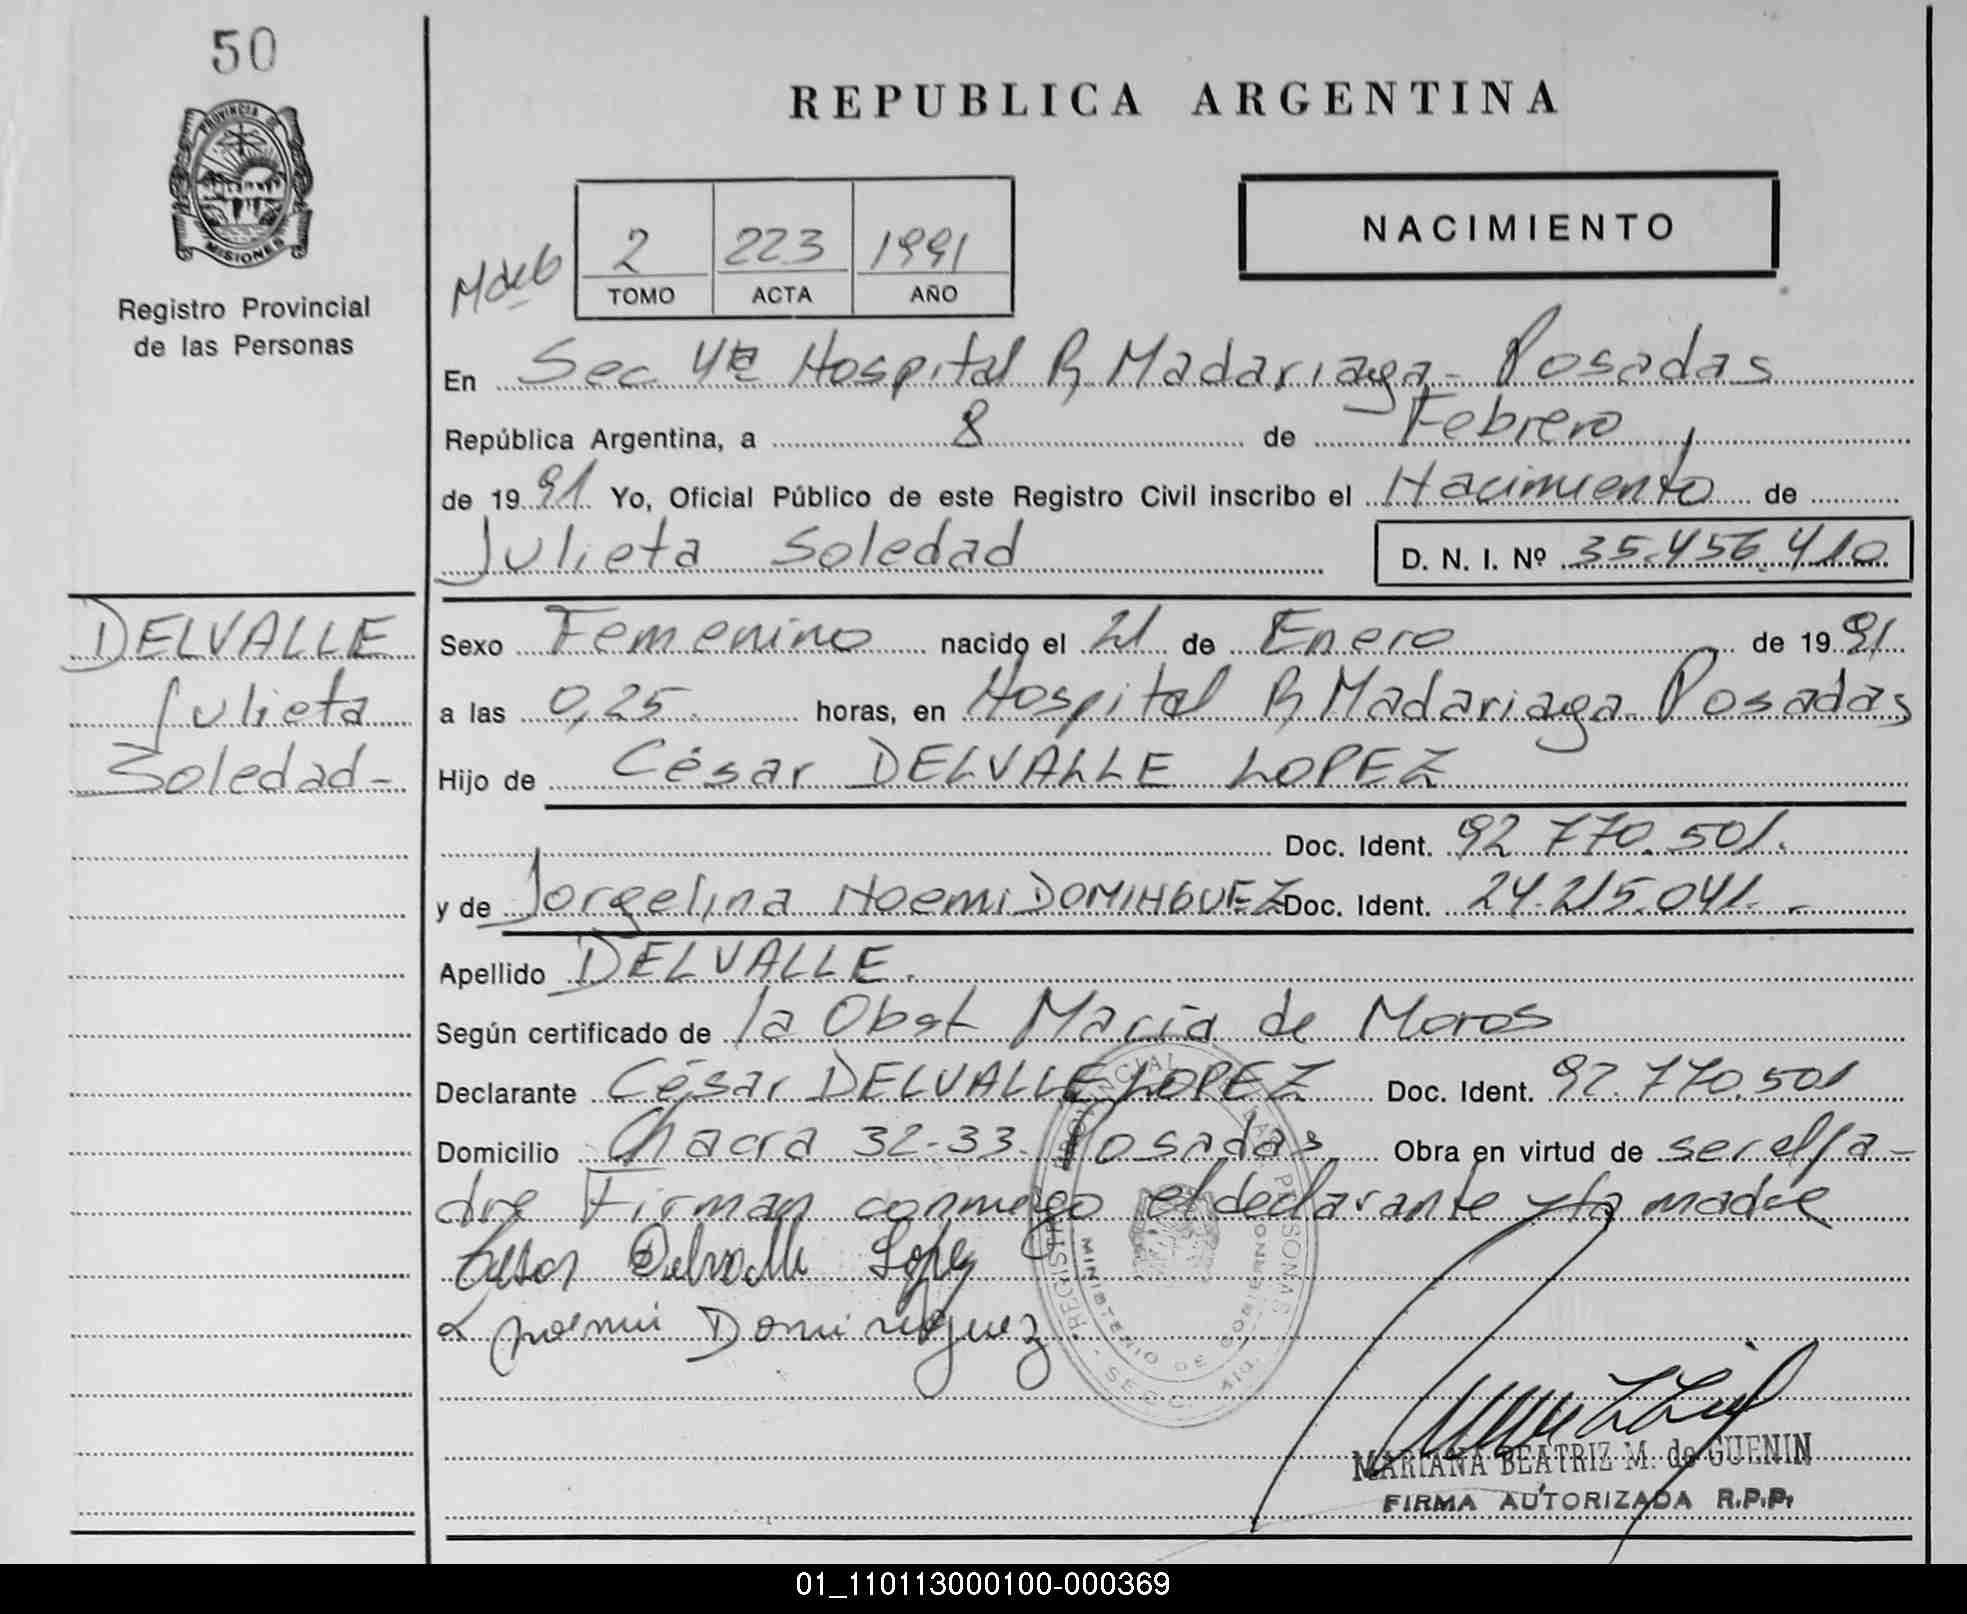 50
PROVINCIA DE
MISIONES
Registro Provincial
de las Personas
REPUBLICA ARGENTINA
NACIMIENTO
2 223 1991
TOMO ACTA AÑO
En Sec 4ta Hospital R Madariaga - Posadas
República Argentina, a 8 de Febrero
de 1991 Yo, Oficial Público de este Registro Civil inscribo el Nacimiento de
Julieta Soledad D. N. I. Nº 35.456.410
DELVALLE
Julieta
Soledad-
Sexo Femenino nacido el 21 de Enero de 1991
a las 0,25 horas, en Hospital R Madariaga Posadas
Hijo de César DELVALLE LOPEZ
Doc. Ident. 92.770.501.
y de Jorgelina Noemi DOMINGUEZ Doc. Ident. 24.215.041.-
Apellido DELVALLE.
Según certificado de la Obst Maria de Moros
Declarante César DELVALLE LOPEZ Doc. Ident. 92.770.501
Domicilio Chacra 32-33. Posadas. Obra en virtud de ser el pa-
dre Firman conmigo el declarante y la madre
Cesar Delvalle Lopez
noemi Dominguez
REGISTRO PROVINCIAL DE LAS PERSONAS
MINISTERIO DE GOBIERNO
MARIANA BEATRIZ M. de GUENIN
FIRMA AUTORIZADA R.P.P.
01_110113000100-000369